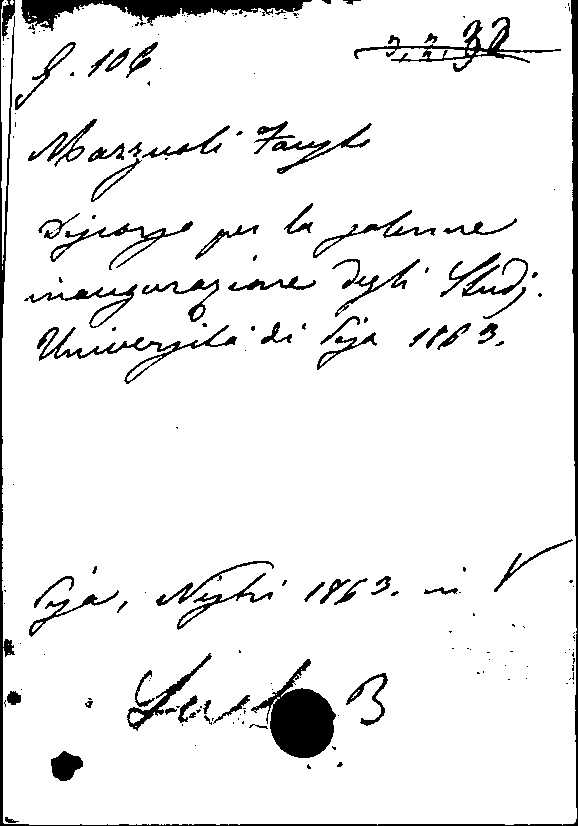 G. 106
3. 2. 32
Mazzuoli
Discorso per la solenne
inaugurazione degli Studj.
Università di Pisa 1863.
Pisa, Nistri 1863. in V
B